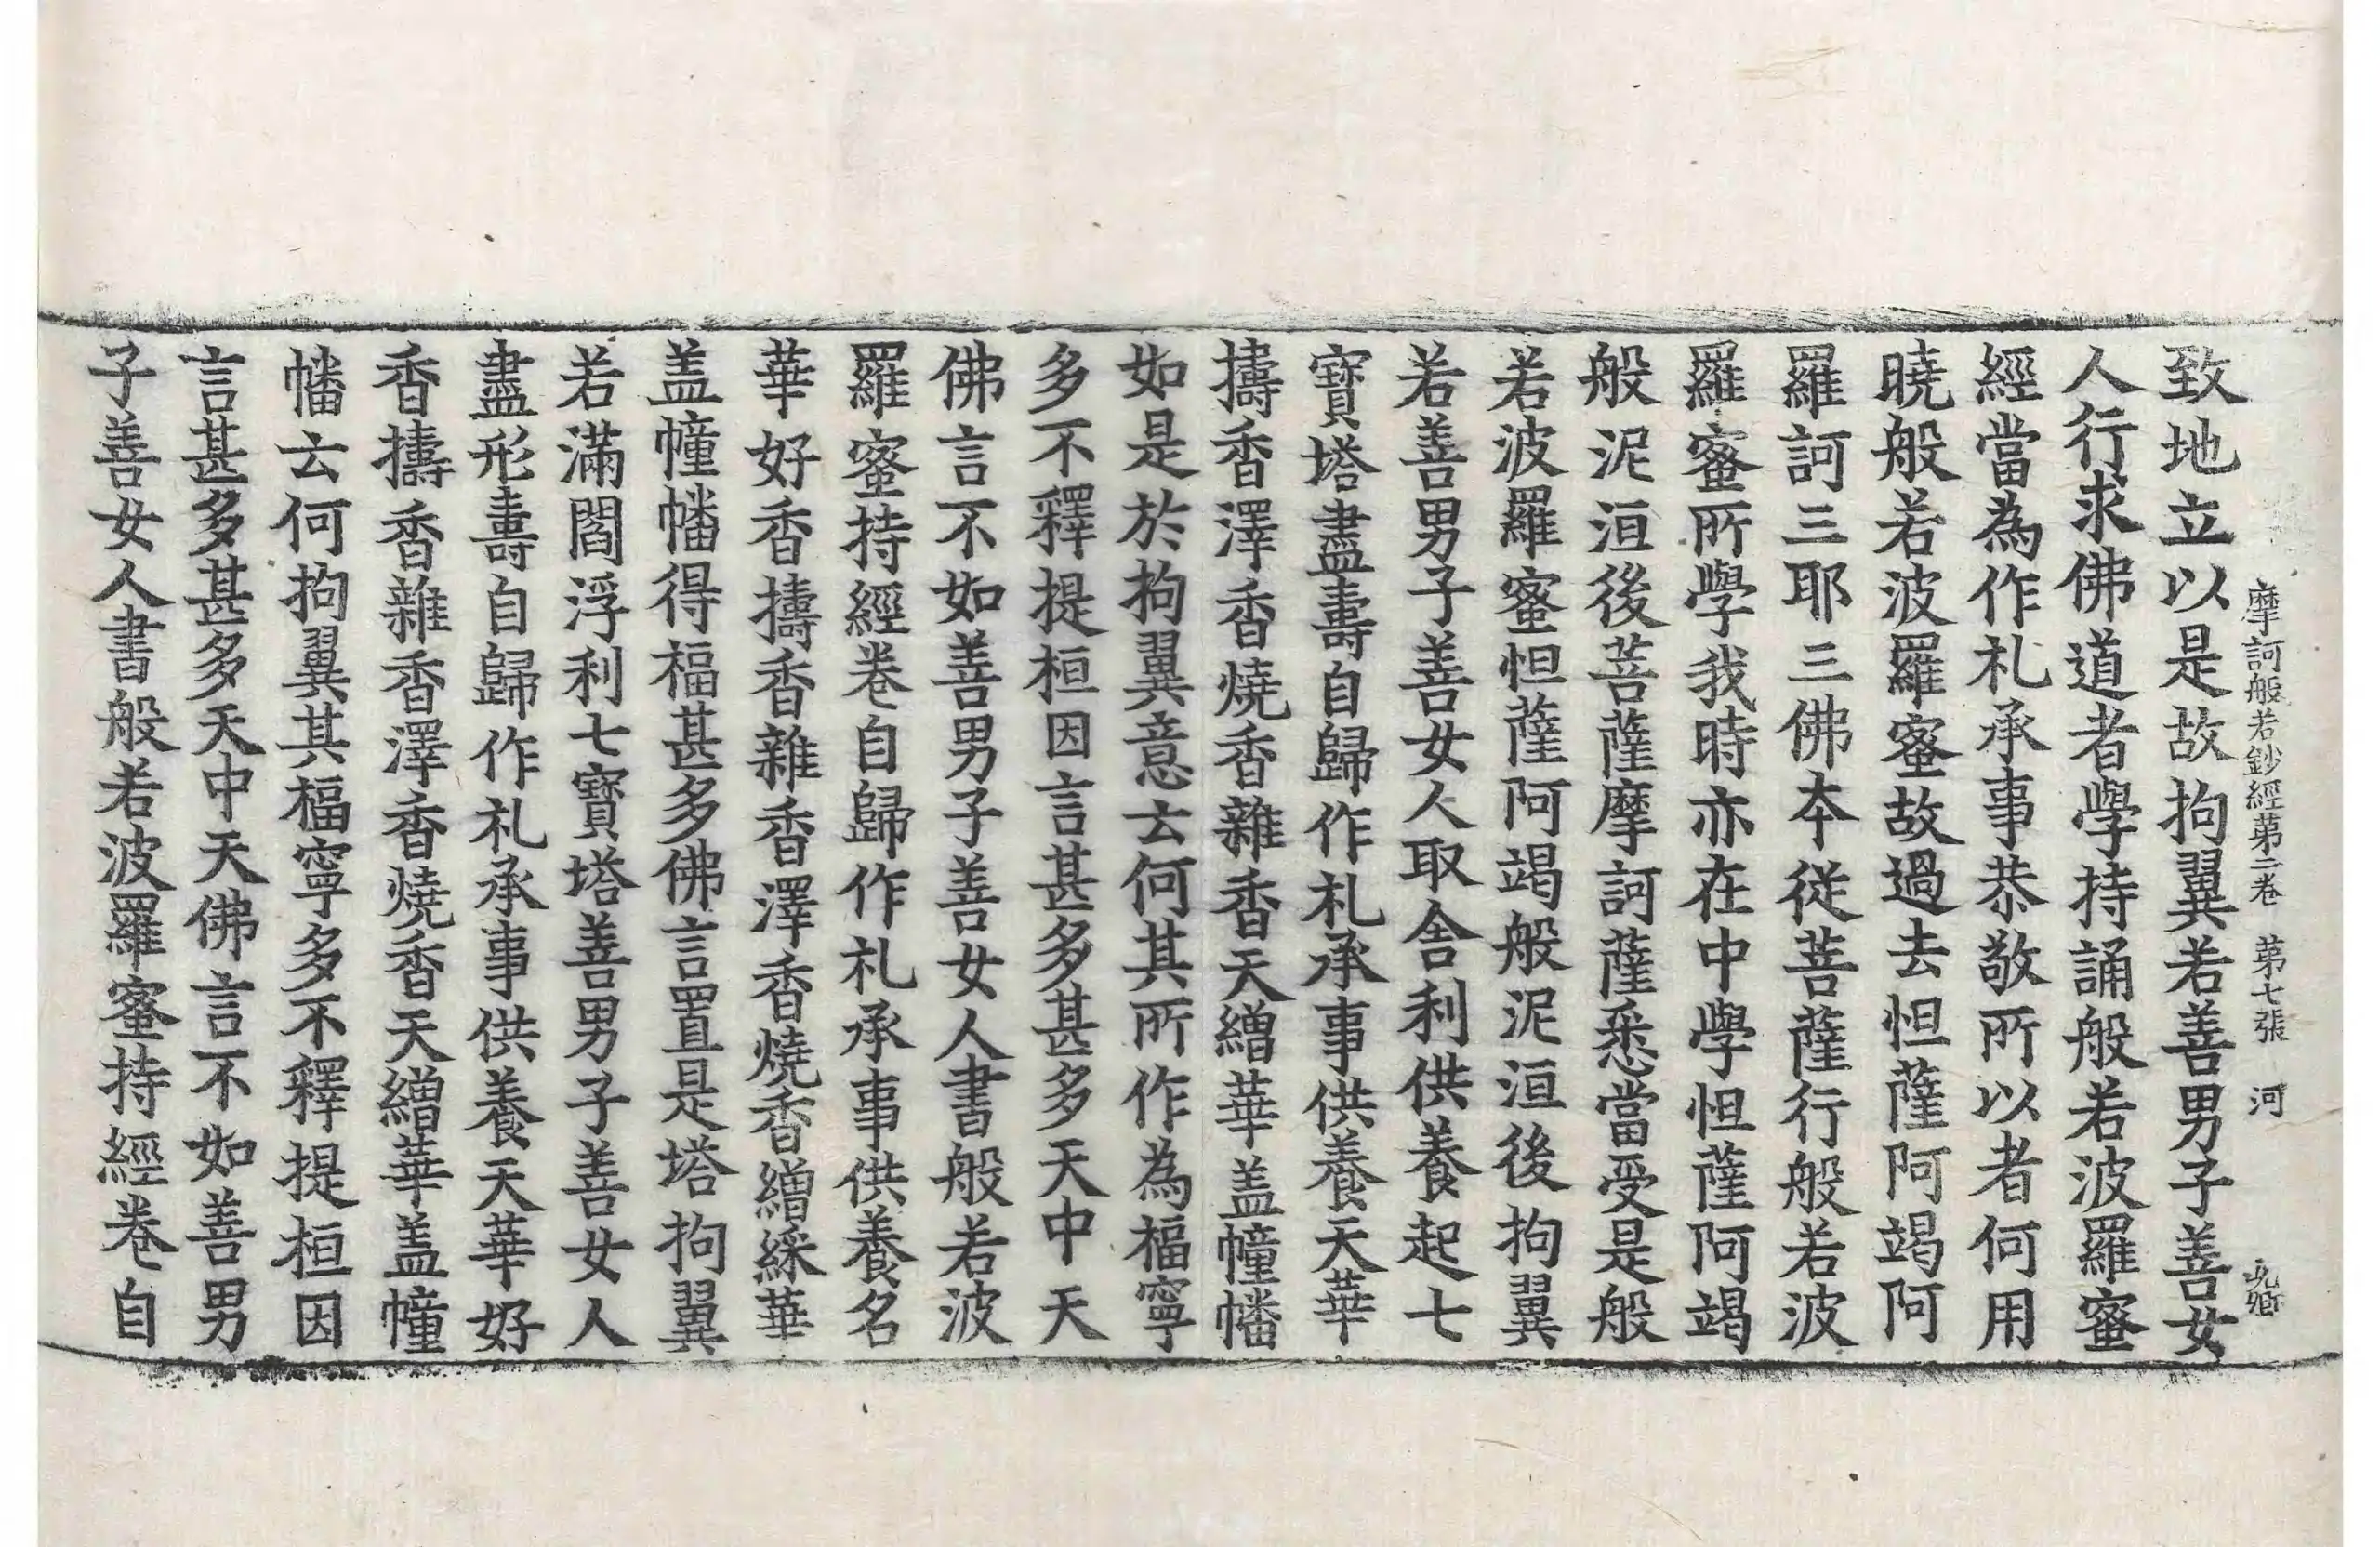 摩訶般若鈔經第二卷　第七張　河
致地立以是故拘翼若善男子善女
人行求佛道者學持誦般若波羅蜜
經當為作礼承事恭敬所以者何用
曉般若波羅蜜故過去怛薩阿竭阿
羅訶三耶三佛本從菩薩行般若波
羅蜜所學我時亦在中學怛薩阿竭
般泥洹後菩薩摩訶薩悉當受是般
若波羅蜜怛薩阿竭般泥洹後拘翼
若善男子善女人取舍利供養起七
寶塔盡壽自歸作礼承事供養天華
擣香澤香燒香雜香天繒華盖幢幡
如是於拘翼意云何其所作為福寧
多不釋提桓因言甚多甚多天中天
佛言不如善男子善女人書般若波
羅蜜持經卷自歸作礼承事供養名
華好香擣香雜香澤香燒香繒綵華
盖幢幡得福甚多佛言置是塔拘翼
若滿閻浮利七寶塔善男子善女人
盡形壽自歸作礼承事供養天華好
香擣香雜香澤香燒香天繒華盖幢
幡云何拘翼其福寧多不釋提桓因
言甚多甚多天中天佛言不如善男
子善女人書般若波羅蜜持經卷自